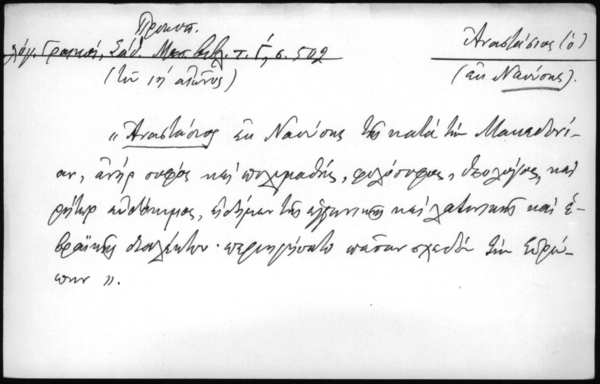 Προκοπ.
λόγ. Γραικοί, Σάθ. Μεσ. Βιβλ. τ. Γ΄, σ. 502
(τοῦ ιη΄ αἰῶνος)
Ἀναστάσιος (ὁ)
(ἐκ Ναούσης).
« Ἀναστάσιος ἐκ Ναούσης τῆς κατὰ τὴν Μακεδονί-
αν, ἀνὴρ σοφὸς καὶ πολυμαθής, φιλόσοφος, θεολόγος καὶ
ῥήτωρ εὐδόκιμος, εἰδήμων τῆς ἑλληνικῆς καὶ λατινικῆς καὶ ἑ-
βραϊκῆς διαλέκτου· περιηγήσατο πᾶσαν σχεδὸν τὴν Εὐρώ-
πην ».